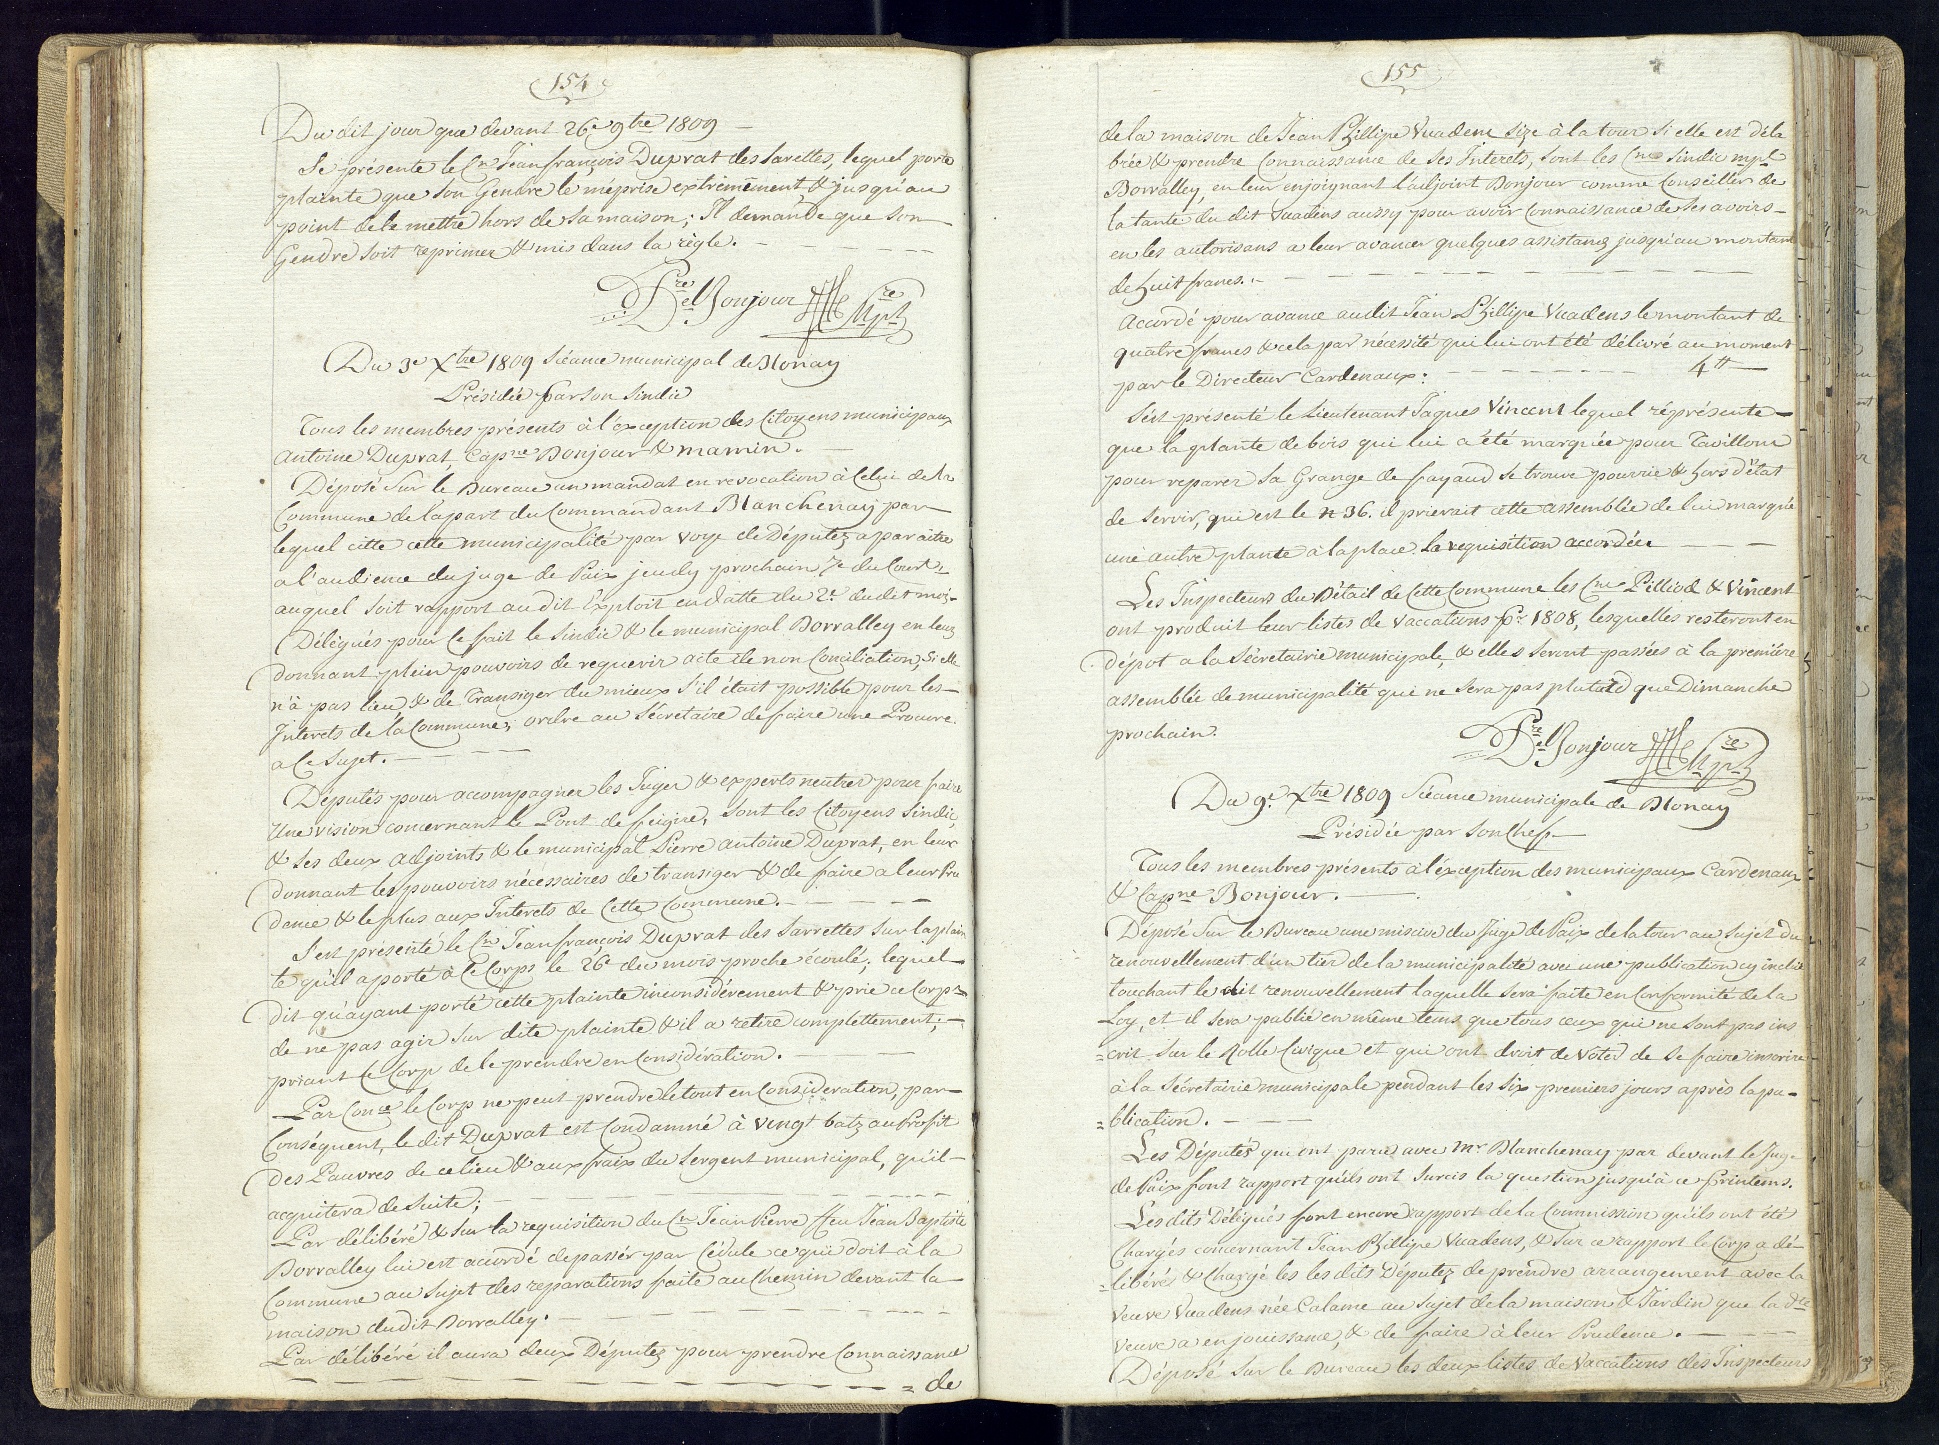 154
Du dit jour que devant 26e 9tre 1809 —
Se présente le Cn Jean françois Duprat des Sarettes, lequel porte
plainte que son Gendre le méprise extrêmement, & jusqu'au
point de le mettre hors de sa maison; Il demande que son
Gendre soit reprimer & mis dans la règle. —
Bonjour
Du 3e Xtre 1809 Séance municipal de Blonay
Présidée par son Sindic
Tous les membres présents à l'exception des Citoyens municipaux
Antoine Duprat, Capne Bonjour & mamin. —
Déposé sur le Bureau un mandat en revocation à Celui de la
Commune de la part du Commandant Blanchenay par
lequel citte cette municipalité par voye de Députez a paraitre
a l'audience du juge de Paix jeudy prochain 7e du Court,
auquel soit rapport au dit Exploit en datte du 2e du dit mois.
Délégués pour ce fait le Sindic & le municipal Borralley en leur
donnant plein pouvoirs de requerir acte de non Conciliation, si elle
n'a pas lieu, & de Transiger du mieux s'il était possible pour les —
Interets de la Commune; ordre au Sécretaire de faire une Procure
a Ce Sujet. —
Députés pour accompagner les Juges & experts neutres pour faire
Une vision concernant le Pont de feigire, sont les Citoyens Sindic,
& ses deux adjoints & le municipal Pierre antoine Duprat, en leur
donnant les pouvoirs nécessaires de transiger & de faire a leur Pru
dence & le plus aux Interets de Cette Commune. —
S'est présenté le Cn Jean françois Duprat des Sarrettes sur la plain
te qu'il a porté à Ce Corps le 26e du mois proche écoulé; lequel
dit qu'ayant porté cette plainte inconsidérement & prie ce Corps
de ne pas agir sur dite plainte & il a retire complettement; —
priant Ce Corp de le prendre en Considération. —
Par Conce le Corp ne peut prendre le tout en Consideration, par —
Conséquent, le dit Duprat est Condamné à vingt batz au Profit
des Pauvres de ce lieu & aux fraix du Sergent municipal, qu'il —
acquitera de Suite; —
Par délibéré & sur la requisition du Cn Jean Pierre ffeu Jean Baptiste
Borralley lui est acordé de passér par Cédule ce qui doit à la
Commune au sujet des reparations faite au Chemin devant la
maison du dit Borralley. —
Par délibéré il aura deux Députez pour prendre Connaissance
= de
155
de la maison de Jean Phillipe Vuadens size à la tour si elle est déla
brée & prendre Connaissance de ses Interets, sont les Cns Sindic mpl
Borralley, en leur enjoignant l'adjoint Bonjour comme Conseiller de
la tante du dit Vuadens aussy pour avoir Connaissance de ses avoirs —
en les autorisans a leur avancer quelques assistance jusqu'au montant
de huit francs. —
Acordé pour avance audit Jean Phillipe Vuadens le montant de
quatre francs & cela par nécessité qui lui ont été délivré au moment
par le Directeur Cardenaux: — 4tt —
S'est présenté le Lieutenant Jaques Vincent lequel réprésente —
que la plante de bois qui lui a été marquée pour Tavillons
pour reparer sa Grange de fayaud se trouve pourrie & hors d'état
de servir, qui est le n 36. il prierait cette assemblée de lui marqué
une autre plante à la place. La requisition accordée —
Les Inspecteurs du Bétail de Cette Commune les Cns Pilliod & Vincent
ont produit leur listes de vaccations pr 1808, lesquelles resteront en
dépot a la Sécretairie municipale, & elles seront passées à la première
assemblée de municipalité qui ne sera pas plutard que Dimanche
prochain.
Bonjour
Du 9e Xtre 1809 Séance municipale de Blonay
Présidée par son Chef —
Tous les membres présents à l'exception des municipaux Cardenaux
& Capne Bonjour. —
Déposé sur le Bureau une missive du Juge de Paix de la tour au Sujet du
renouvellement d'un tier de la municipalité avec une publication cy inclue
touchant le dit renouvellement laquelle sera faite en Conformité de la
Loy, et il sera publié en même tems que tous ceux qui ne sont pas ins
= crit sur le Rolle Civique et qui ont droit de voter de se faire inscrire
à la Sécretairie municipale pendant les six premiers jours après la pu-
= blication. —
Les Députés qui ont parus avec Mr Blanchenay par devant le Juge
de Paix font rapport qu'ils ont surcis la question jusqu'à ce Printems.
Les dits Délégués font encore rapport de la Commission qu'ils ont été
Chargés concernant Jean Phillipe Vuadens, & sur ce rapport le Corp a dé-
= libérés & Chargé les les dits Députez de prendre arrangement avec la
veuve Vuadens née Calame au Sujet de la maison & Jardin que la dte
veuve a en jouissance, & de faire à leur Prudence. —
Déposé sur le Bureau les deux listes de Vaccations des Inspecteurs